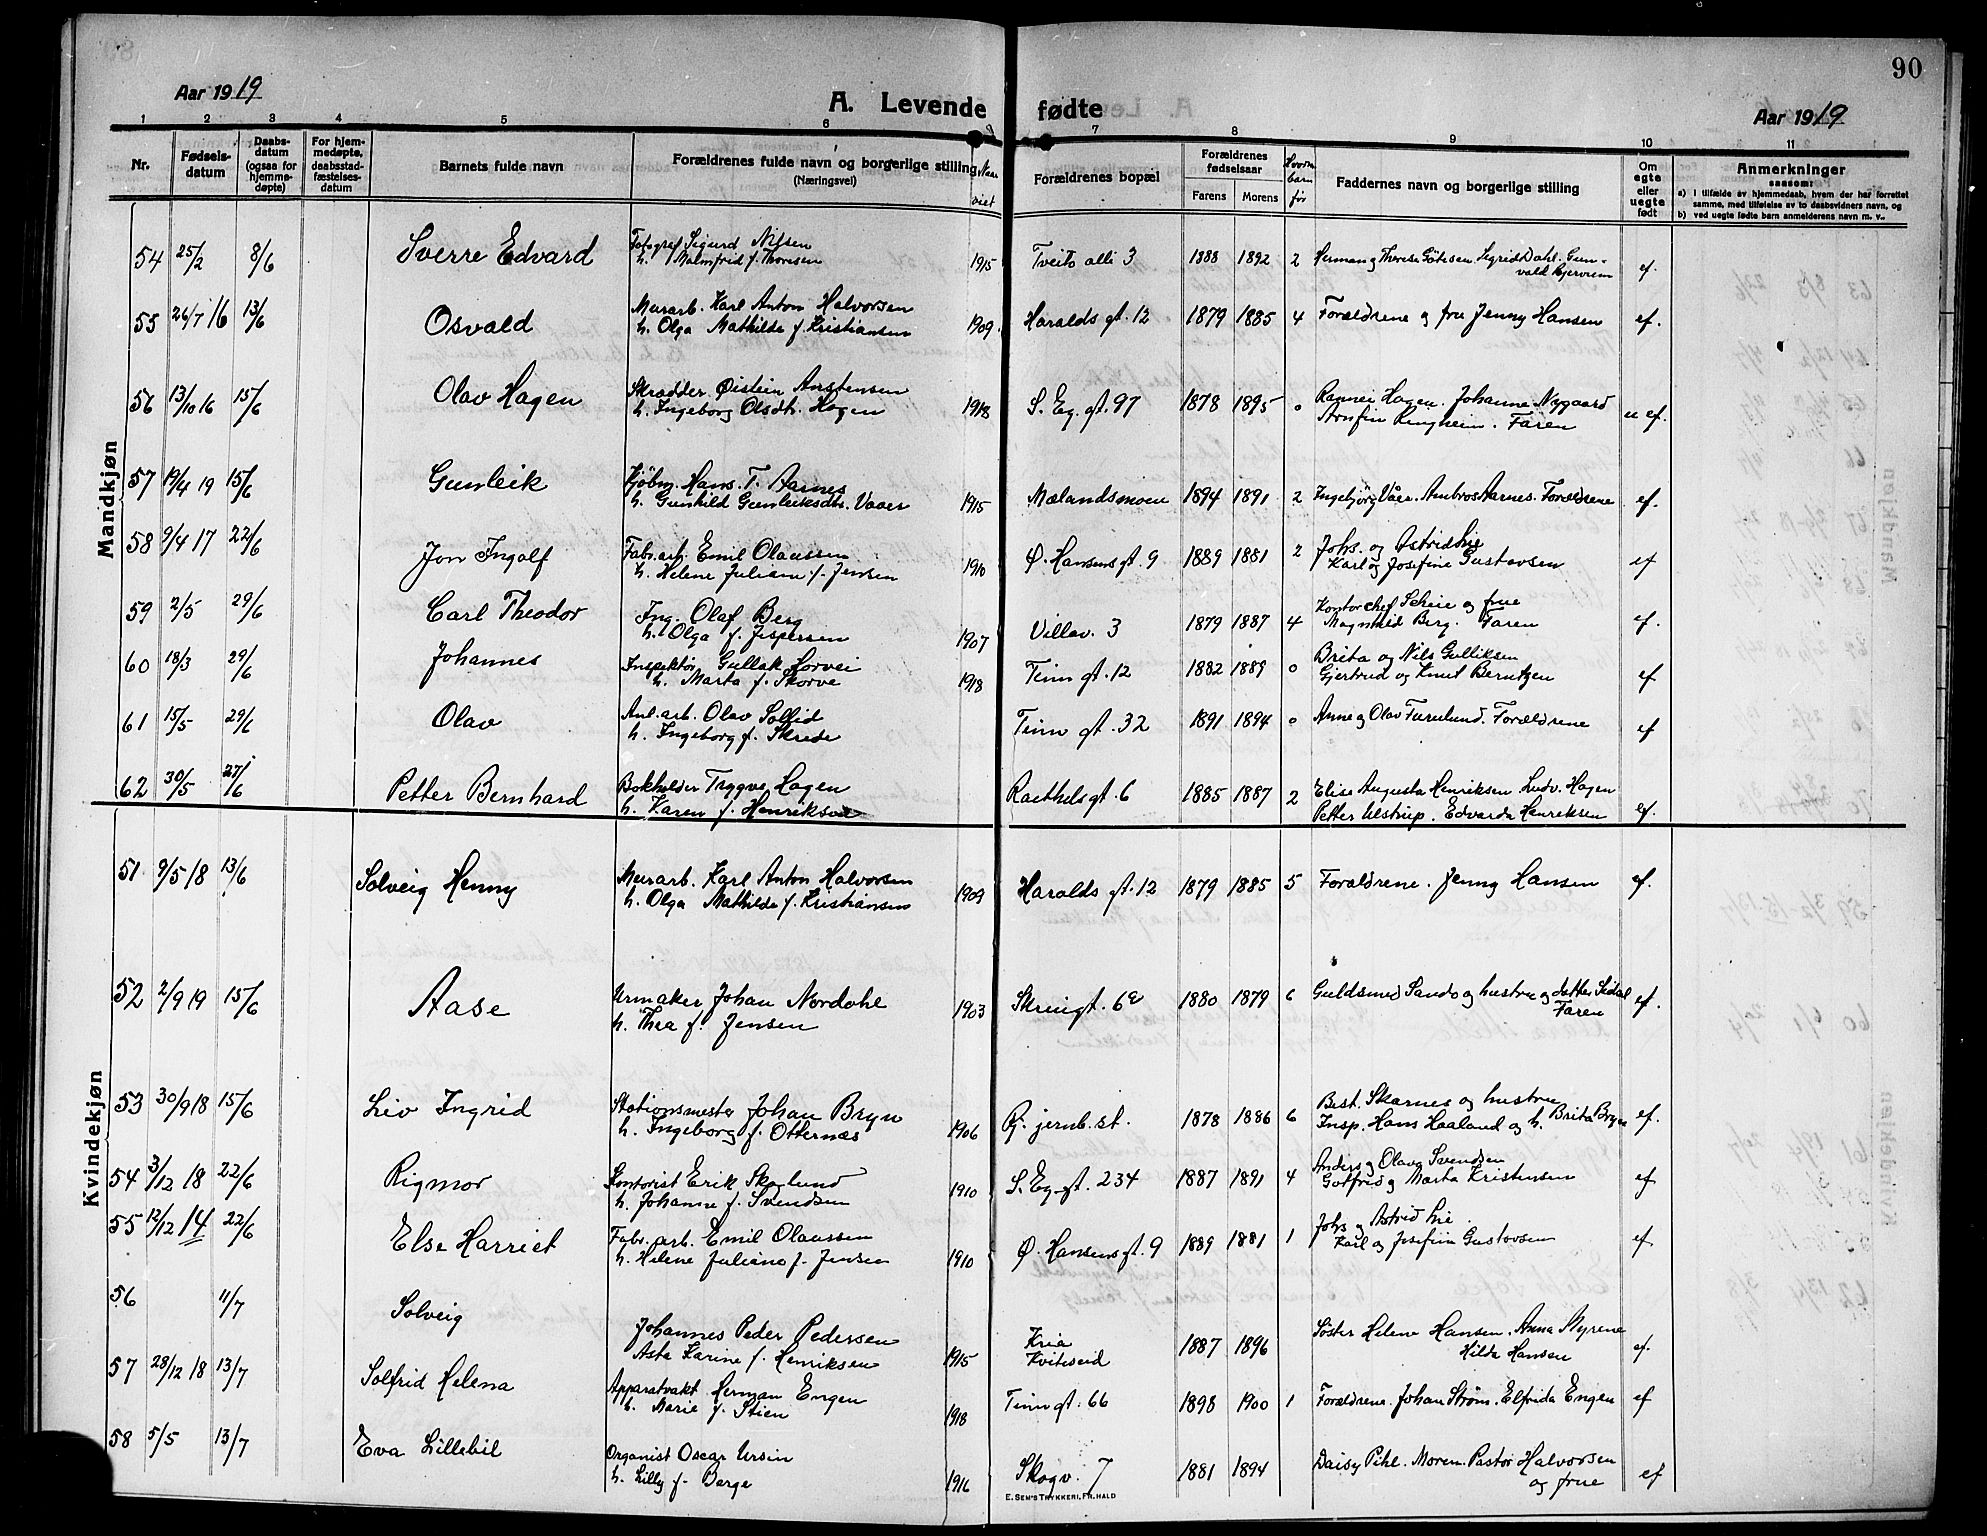 90
Aar 1919
A. Levende fødte
Aar 1919
1 2 3 4 5 6 7 8 9 10 11
Nr.
Fødsels-
datum
Daabs-
datum
(ogsaa for
hjemme-
døpte)
For hjem-
medøpte,
daabsstad-
fæstelses-
datum
Barnets fulde navn
Forældrenes fulde navn og borgerlige stilling
(Næringsvei)
Naar
viet
Forældrenes bopæl
Forældrenes
fødselsaar
Farens Morens
Hvorm.
barn
før
Faddernes navn og borgerlige stilling
Om
egte
eller
uegte
født
Anmerkninger
saasom:
a) I tilfælde av hjemmedaab, hvem der har forrettet
samme, med tilføielse av to daabsvidners navn, og
b) ved uegte fødte barn anmelderens navn m. v.
Mandkjøn
54 25/2 8/6 Sverre Edvard Fotograf Sigurd Nilsen 1915 Tveito alle 3 1888 1892 2 Herman og Therese Götesen. Sigrid Dahl. Gun-
h. Malmfrid f. Thoresen vald Bjervrem ef.
55 26/7 16 13/6 Osvald Murarb. Karl Anton Halvorsen 1909 Haralds gt. 12 1879 1885 4 Forældrene og fru Jenny Hansen ef.
h. Olga Mathilde f. Kristiansen
56 13/10 16 15/6 Olav Hagen Skrædder Øistein Anstensen 1918 S. Eg. gt. 97 1878 1895 0 Rannei Hagen. Johanne Nygaard u ef.
h. Ingeborg Olsdt. Hagen Arnfin Ringheim. Faren
57 19/4 19 15/6 Gunleik Kjøbm. Hans. T. Aarnes 1915 Mælandsmoen 1894 1891 2 Ingebjörg Våer. Ambros Aarnes. Forældrene ef.
h. Gunhild Gunleiksdtr. Vaaer
58 9/4 17 22/6 Jon Ingolf Fabr.arb. Emil Olaussen 1910 Ø. Hansens gt. 9 1889 1881 2 Johs. og Astrid Lie
h. Helene Juliane f. Jensen Karl og Josefine Gustavsen ef
59 2/5 29/6 Carl Theodor Ing. Olaf Berg 1907 Villav. 3 1879 1887 4 Kontorchef Scheie og frue
h. Olga f. Jespersen Magnhild Berg. Faren ef.
60 18/3 29/6 Johannes Inspektör Gullak Horvei 1918 Tinn gt. 12 1882 1889 0 Brita og Nils Gulliksen
h. Marta f. Skorve Gjertrud og Knut Berntzen ef
61 15/5 29/6 Olav Anl.arb. Olav Sollid Tinn gt. 32 1891 1894 0 Anne og Olav Furulund. Forældrene ef
h. Ingeborg f. Skrede
62 30/5 27/6 Petter Bernhard Bokholder Trygve Hagen 1885 1887 2 Elise Augusta Henriksen Ludv. Hagen
h. Karen f. Henriksen Petter Ulstrup. Edvarda Henriksen ef.
Kvindekjøn
51 9/5 18 13/6 Solveig Henny Murarb. Karl Anton Halvorsen 1909 Haralds gt. 12 1879 1885 5 Forældrene. Jenny Hansen ef.
h. Olga Mathilde f. Kristiansen
52 2/9 19 15/6 Aase Urmaker Johan Nordahl 1903 1880 1879 6 Guldsmed Sando og hustru og datter ef.
h. Thea f. Jensen Faren
53 30/9 18 15/6 Liv Ingrid Stationsmester Johan Bryn 1906 Rj. jernb. st. 1878 1886 6 Best. Skarnes og hustru
h. Ingeborg f. Otternæs Insp. Hans Haaland og h. Brita Bryn ef.
54 3/12 18 22/6 Rigmor Kontorist Erik Skoglund 1910 S. Eg. gt. 234 1887 1891 4 Anders og Olava Svendsen
h. Johanne f. Svendsen Gotfrid og Marta Kristensen ef
55 12/12 14 22/6 Else Harriet Fabr. arb. Emil Olaussen 1910 Ø. Hansens gt. 9 1889 1881 1 Johs og Astrid Lie.
h. Helene Juliane f. Jensen Karl og Josefine Gustavsen ef.
56 11/7 Solveig Johannes Peder Pedersen 1915 Kria 1887 1896 Söster Helene Hansen. Anna Myrene
Asta Karine f. Henriksen Kviteseid Hilda Hansen ef.
57 28/12 18 13/7 Solfrid Helena Apparatvakt Herman Engen 1918 Tinn gt. 66 1898 1900 1 Forældrene. Johan Strøm. Elfrida Engen ef
h. Marie f. Stien
58 5/5 13/7 Eva Lillebil Organist Oscar Ursin 1916 Skogv. 7 1881 1894 Daisy Pihl. Moren. Pastor Halvorsen
h. Lilly f. Berge og frue ef
E. SEM'S TRYKKERI, FR. HALD